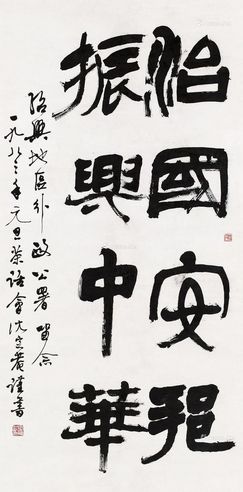 治國安邦
振興中華
紹興地區行政公署留念
一九八三年元旦茶話會沈定菴謹書